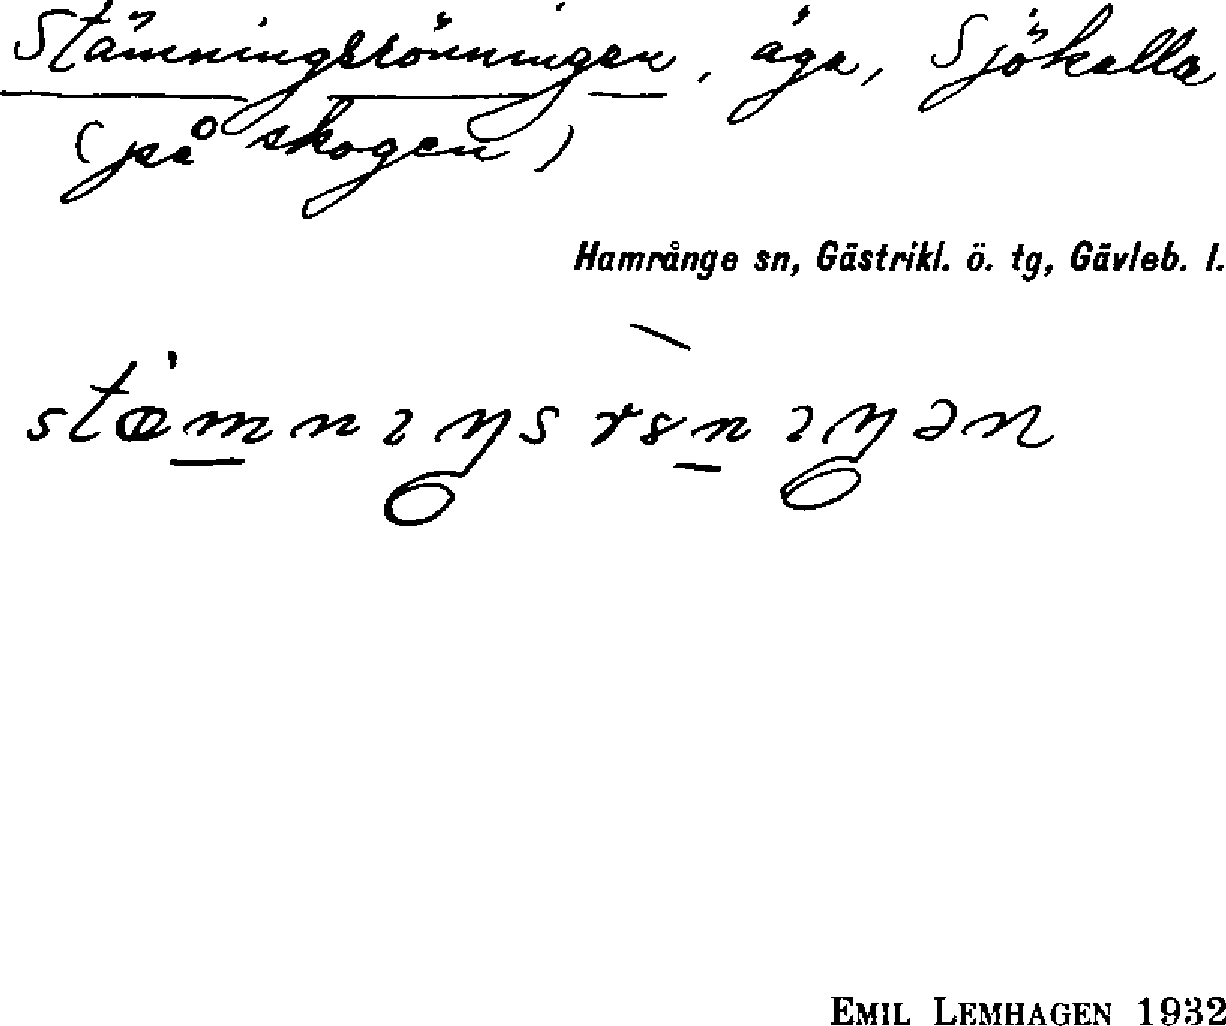 Stämningsrönningen, äga, Sjökalla
(på skogen)
Hamrånge sn, Gästrikl. ö. tg, Gävleb. l.
stæ̀m̲nıŋsrɞn̲ıŋən
EMIL LEMHAGEN 1932